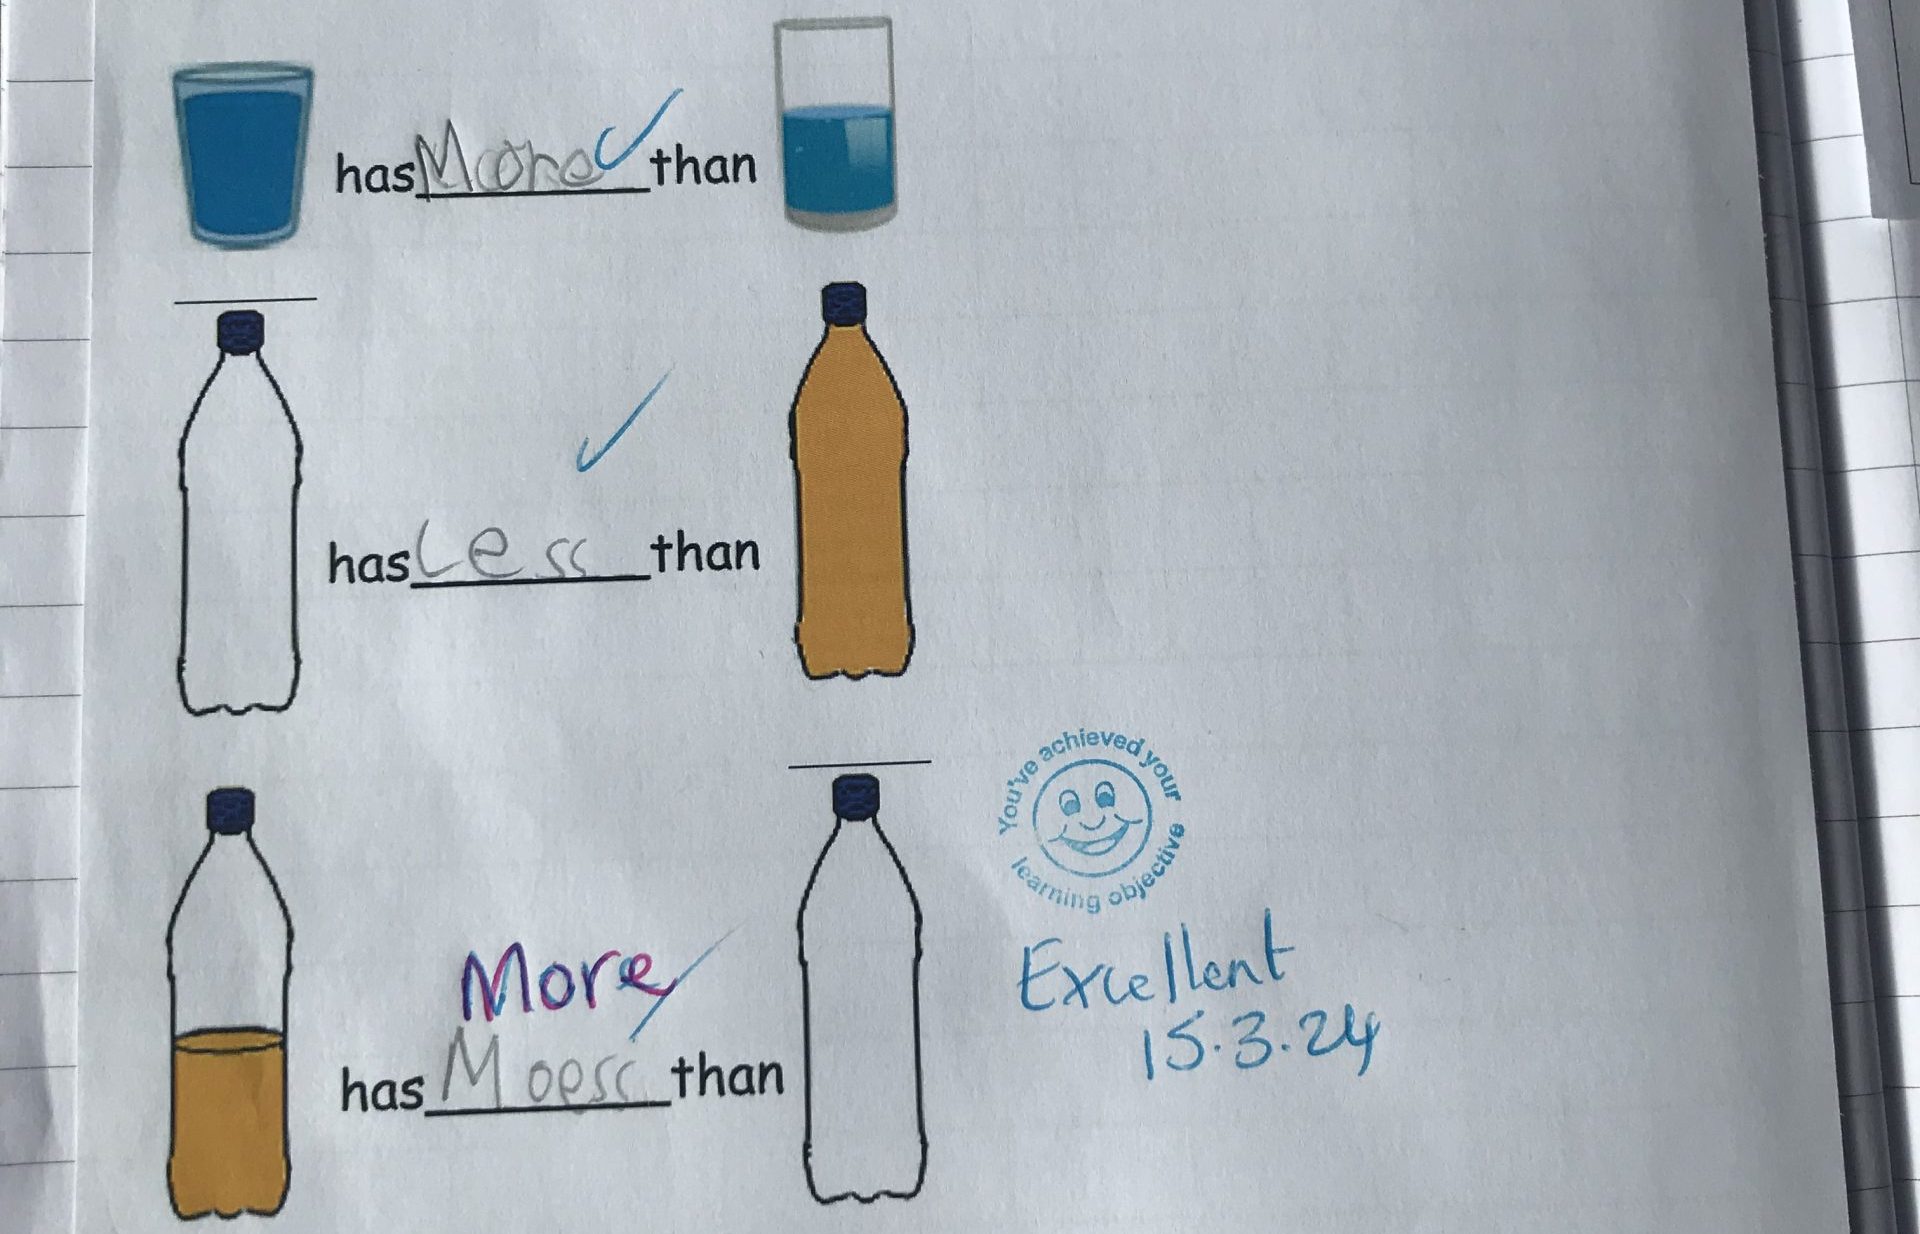 has More than
has Less than
You've achieved your
learning objective
Excellent
15.3.24
More
has Moess than